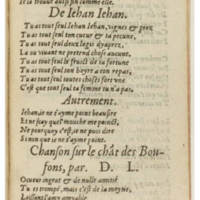 De Iehan Iehan.
Tu as tout seul Iehan Iehan, vignes & prez
Tu as tout seul ton cœur & ta pecune,
Tu as tout seul deux logis
La ou vivant ne pretend chose aucune,
Tu as tout seul le fruit de ta fortune
Tu as tout seul ton boyre & ton repas,
Tu as tout seul toutes choses fors une
C'est que tout seul ta femme tu n'a pas.
Autrement.
Iehan, ie ne t'ayme point
Ne sçay quel mousche me point,
Ne pourquoy c'est, ie ne puis dire
Sinon que ie ne t'ayme point.
Chanson sur le chãt des Bouf-
fons, par. D. L.
& de nulle amitié
Tu es trompé, mais c'est de la moytié,